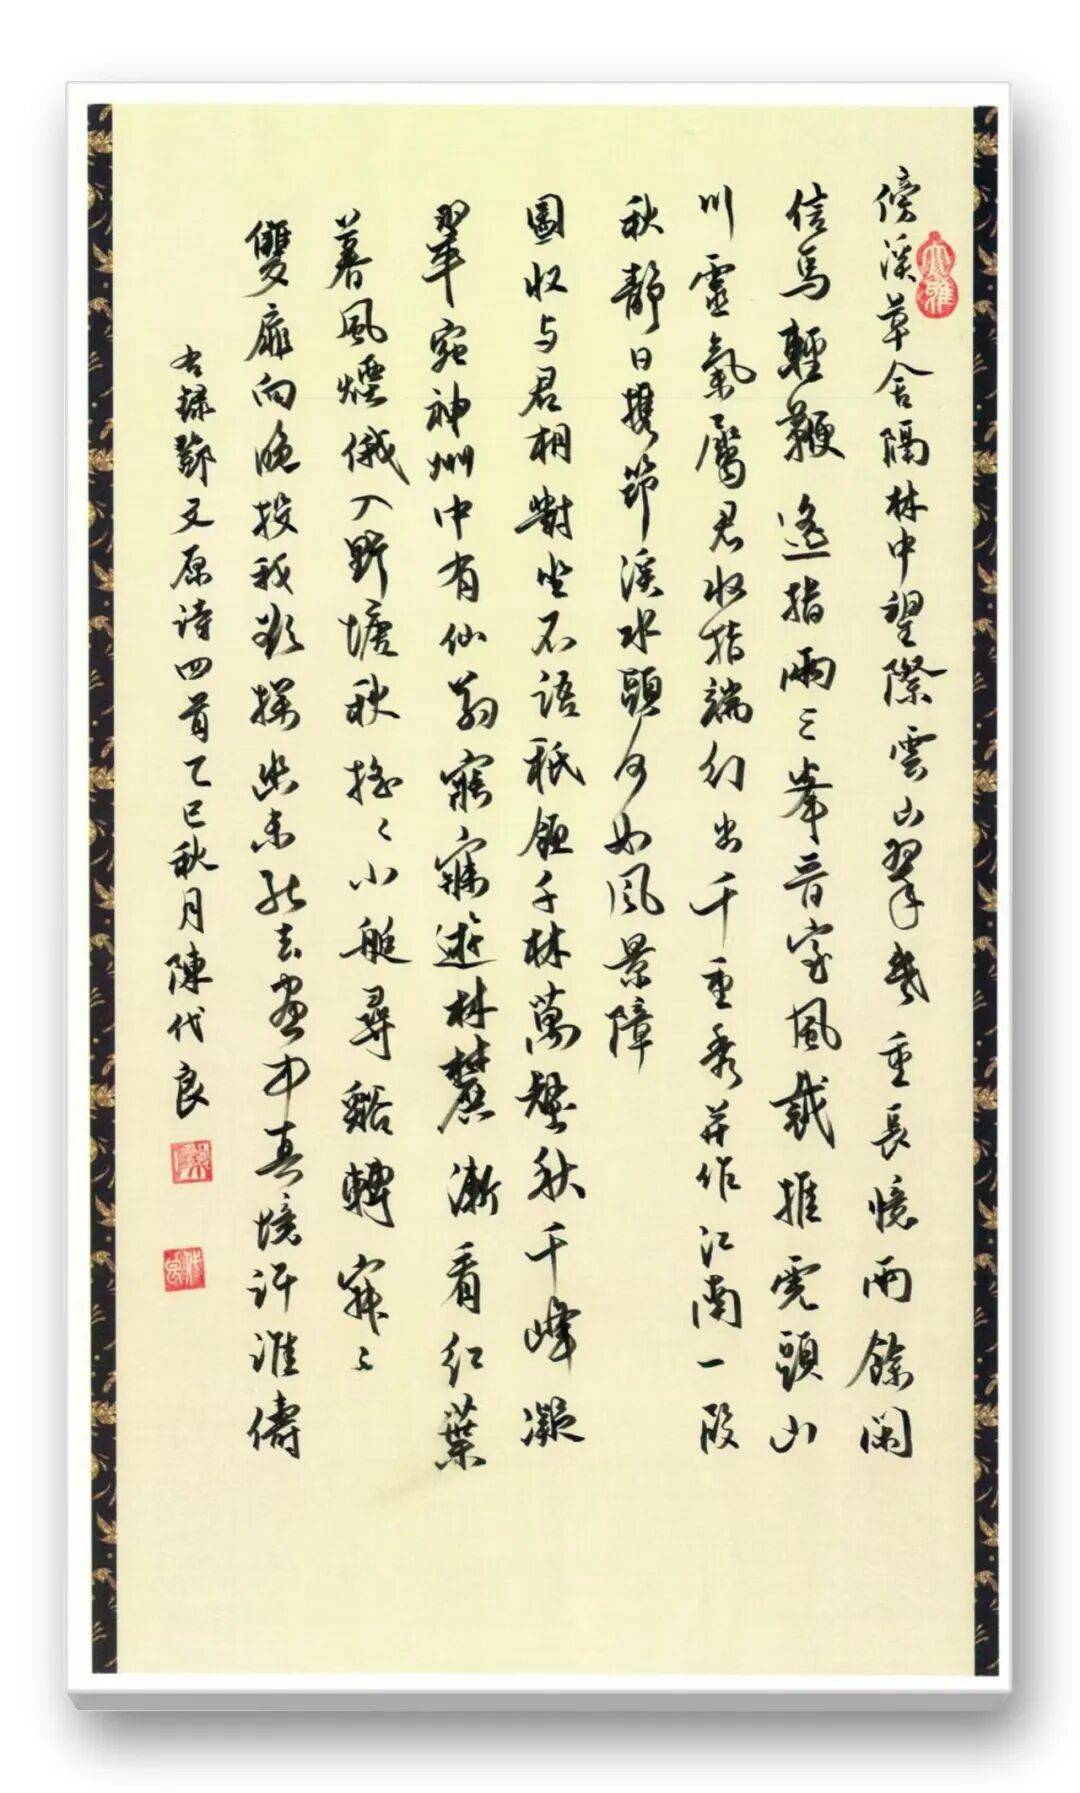 傍溪草舍隔林中望際雲山翠幾重長憶雨餘閑
信馬輕鞭遙指兩三峯音容風裁推虎頭山
川靈氣屬君收指端幻出千重秀并作江南一段
秋靜日携筇溪水頭何如風景障
圖收与君相對坐不語秖領千林萬壑秋千峰凝
翠宛神州中有仙翁寤寐遊林麓漸看紅葉
暮風煙俄入野塘秋搖〻小艇尋谿轉寂〻
雙扉向晚投我欲探幽未能去畫中真境許誰儔
右録鄧文原诗四首乙巳秋月陳代良
大雅